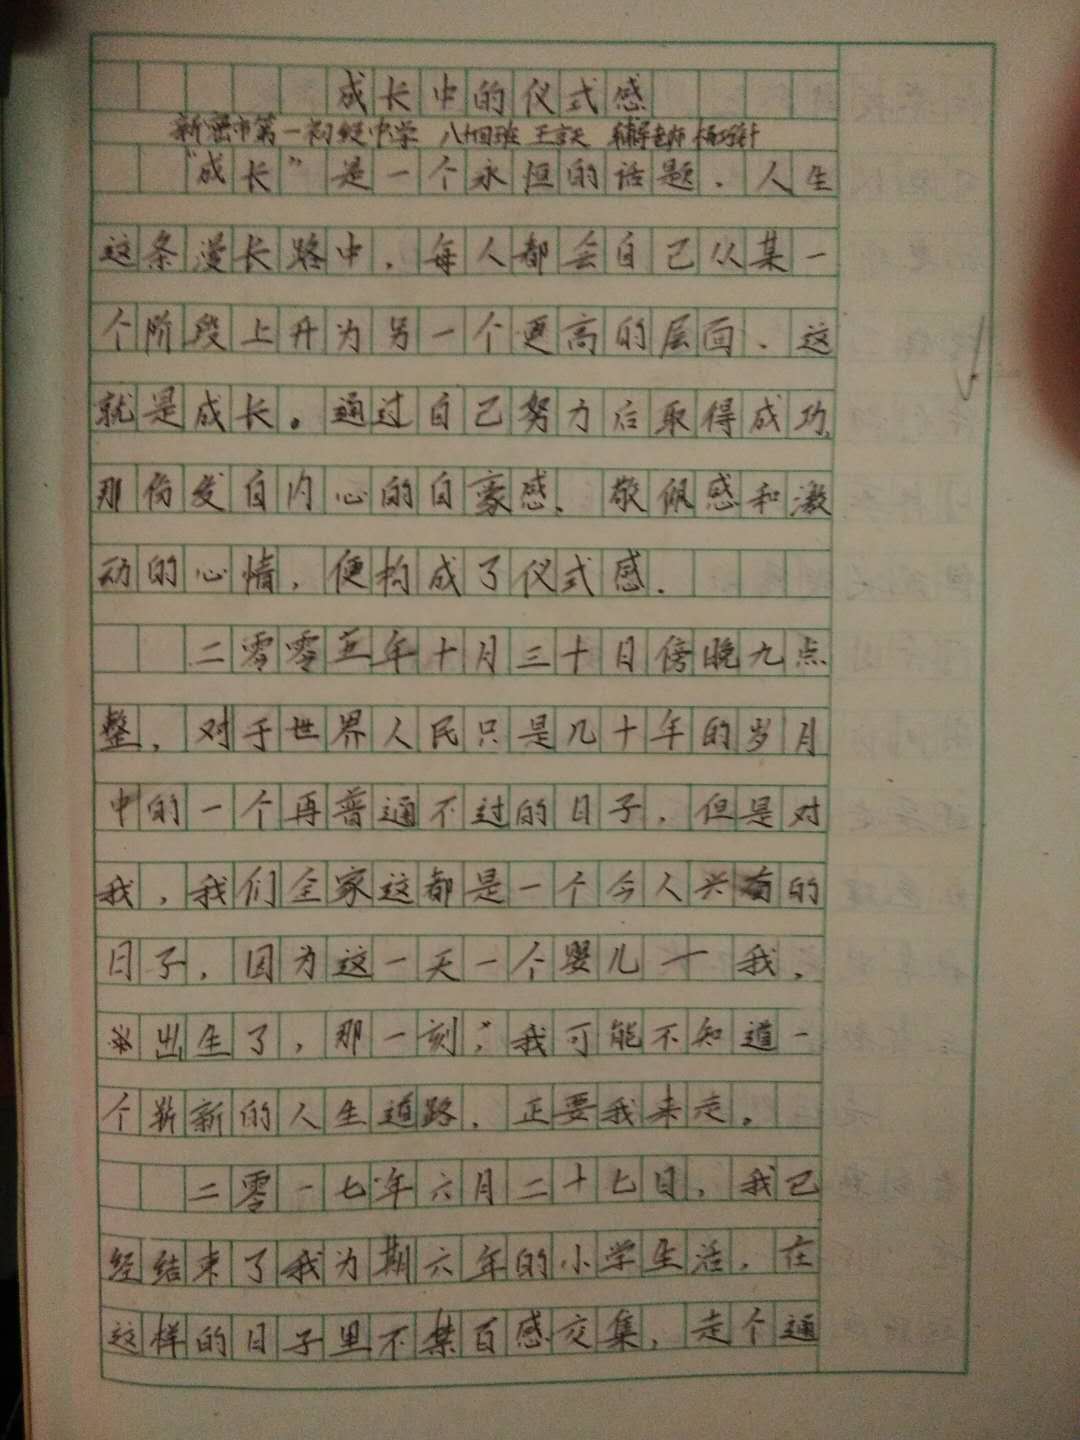 成长中的仪式感
新密市第一初级中学 八十四班 王言天 辅导老师 杨巧针
“成长”是一个永恒的话题.人生
这条漫长路中,每人都会自己从某一
个阶段上升为另一个更高的层面、这
就是成长。通过自己努力后取得成功,
那份发自内心的自豪感、敬佩感和激
动的心情,便构成了仪式感.
二零零五年十月三十日傍晚九点
整,对于世界人民只是几十年的岁月
中的一个再普通不过的日子,但是对
我,我们全家这都是一个令人兴奋的
日子,因为这一天一个婴儿一我,
出生了,那一刻,我可能不知道一
个崭新的人生道路,正要我来走。
二零一七年六月二十七日,我已
经结束了我为期六年的小学生活,在
这样的日子里不禁百感交集,走个通